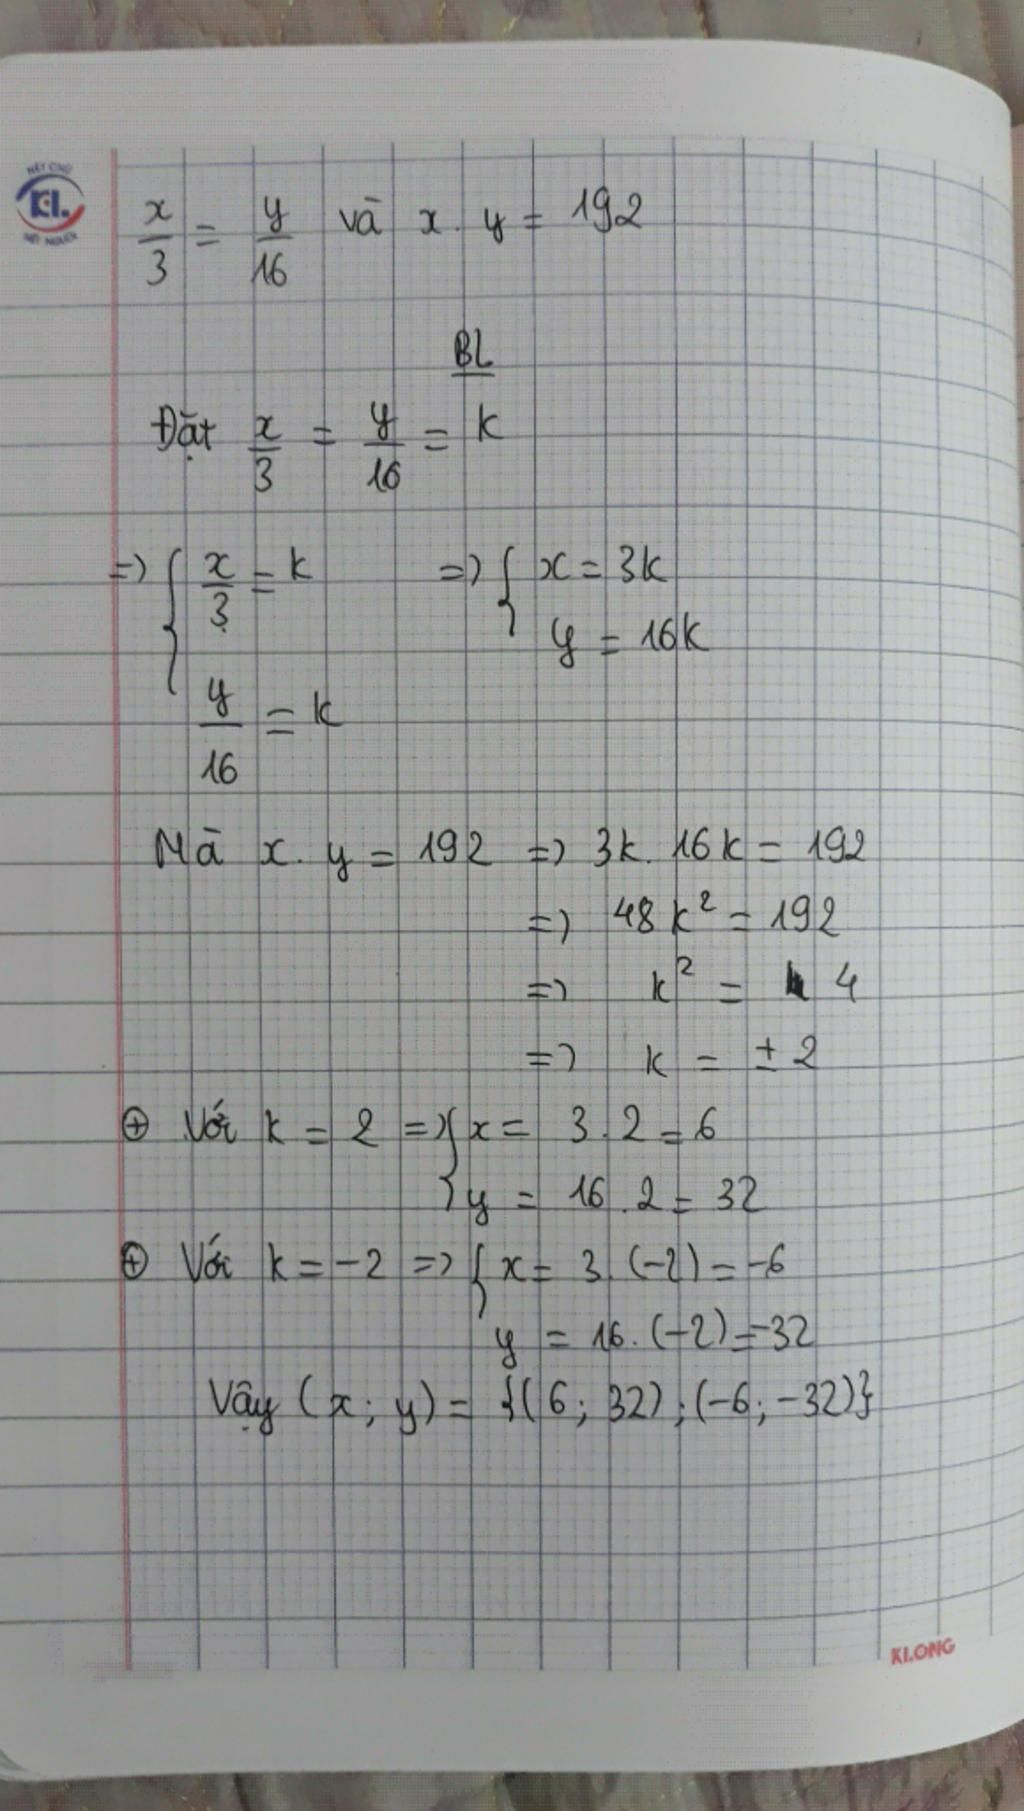 NÉT CHỮ
KL.
NẾT NGƯỜI
x/3 = y/16 và x . y = 192
BL
Đặt x/3 = y/16 = k
=> { x/3 = k => { x = 3k
y = 16k
y/16 = k
Mà x . y = 192 => 3k . 16k = 192
=> 48k² = 192
=> k² = 4
=> k = ± 2
⊕ Với k = 2 => { x = 3 . 2 = 6
y = 16 . 2 = 32
⊕ Với k = -2 => { x = 3 . (-2) = -6
y = 16 . (-2) = -32
Vậy (x ; y) = {(6 ; 32) ; (-6 ; -32)}
KLONG